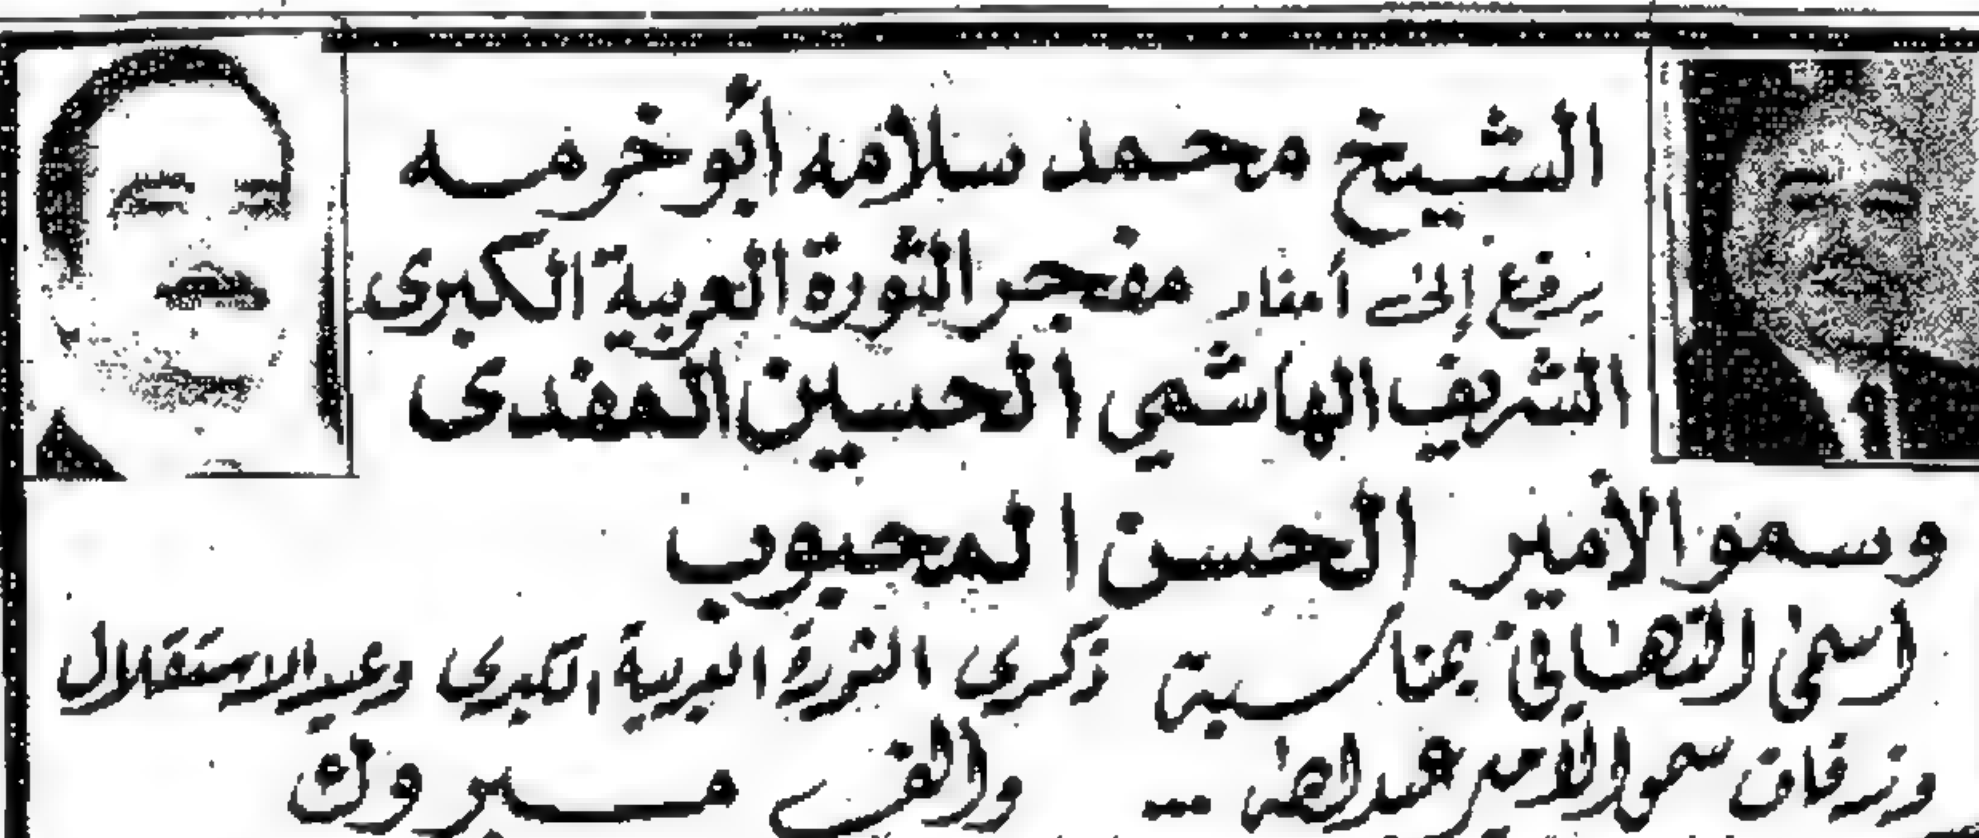 الشيخ محمد سلامه أبو خرمه
يرفع إلى أحفاد مفجر الثورة العربية الكبرى
الشريف الهاشمي الحسين المفدى
وسمو الأمير الحسن المحبوب
اسمى التهاني بمناسبة ذكرى الثورة العربية الكبرى وعيد الاستقلال
وزفاف سمو الأمير عبدالله .. والف مبروك